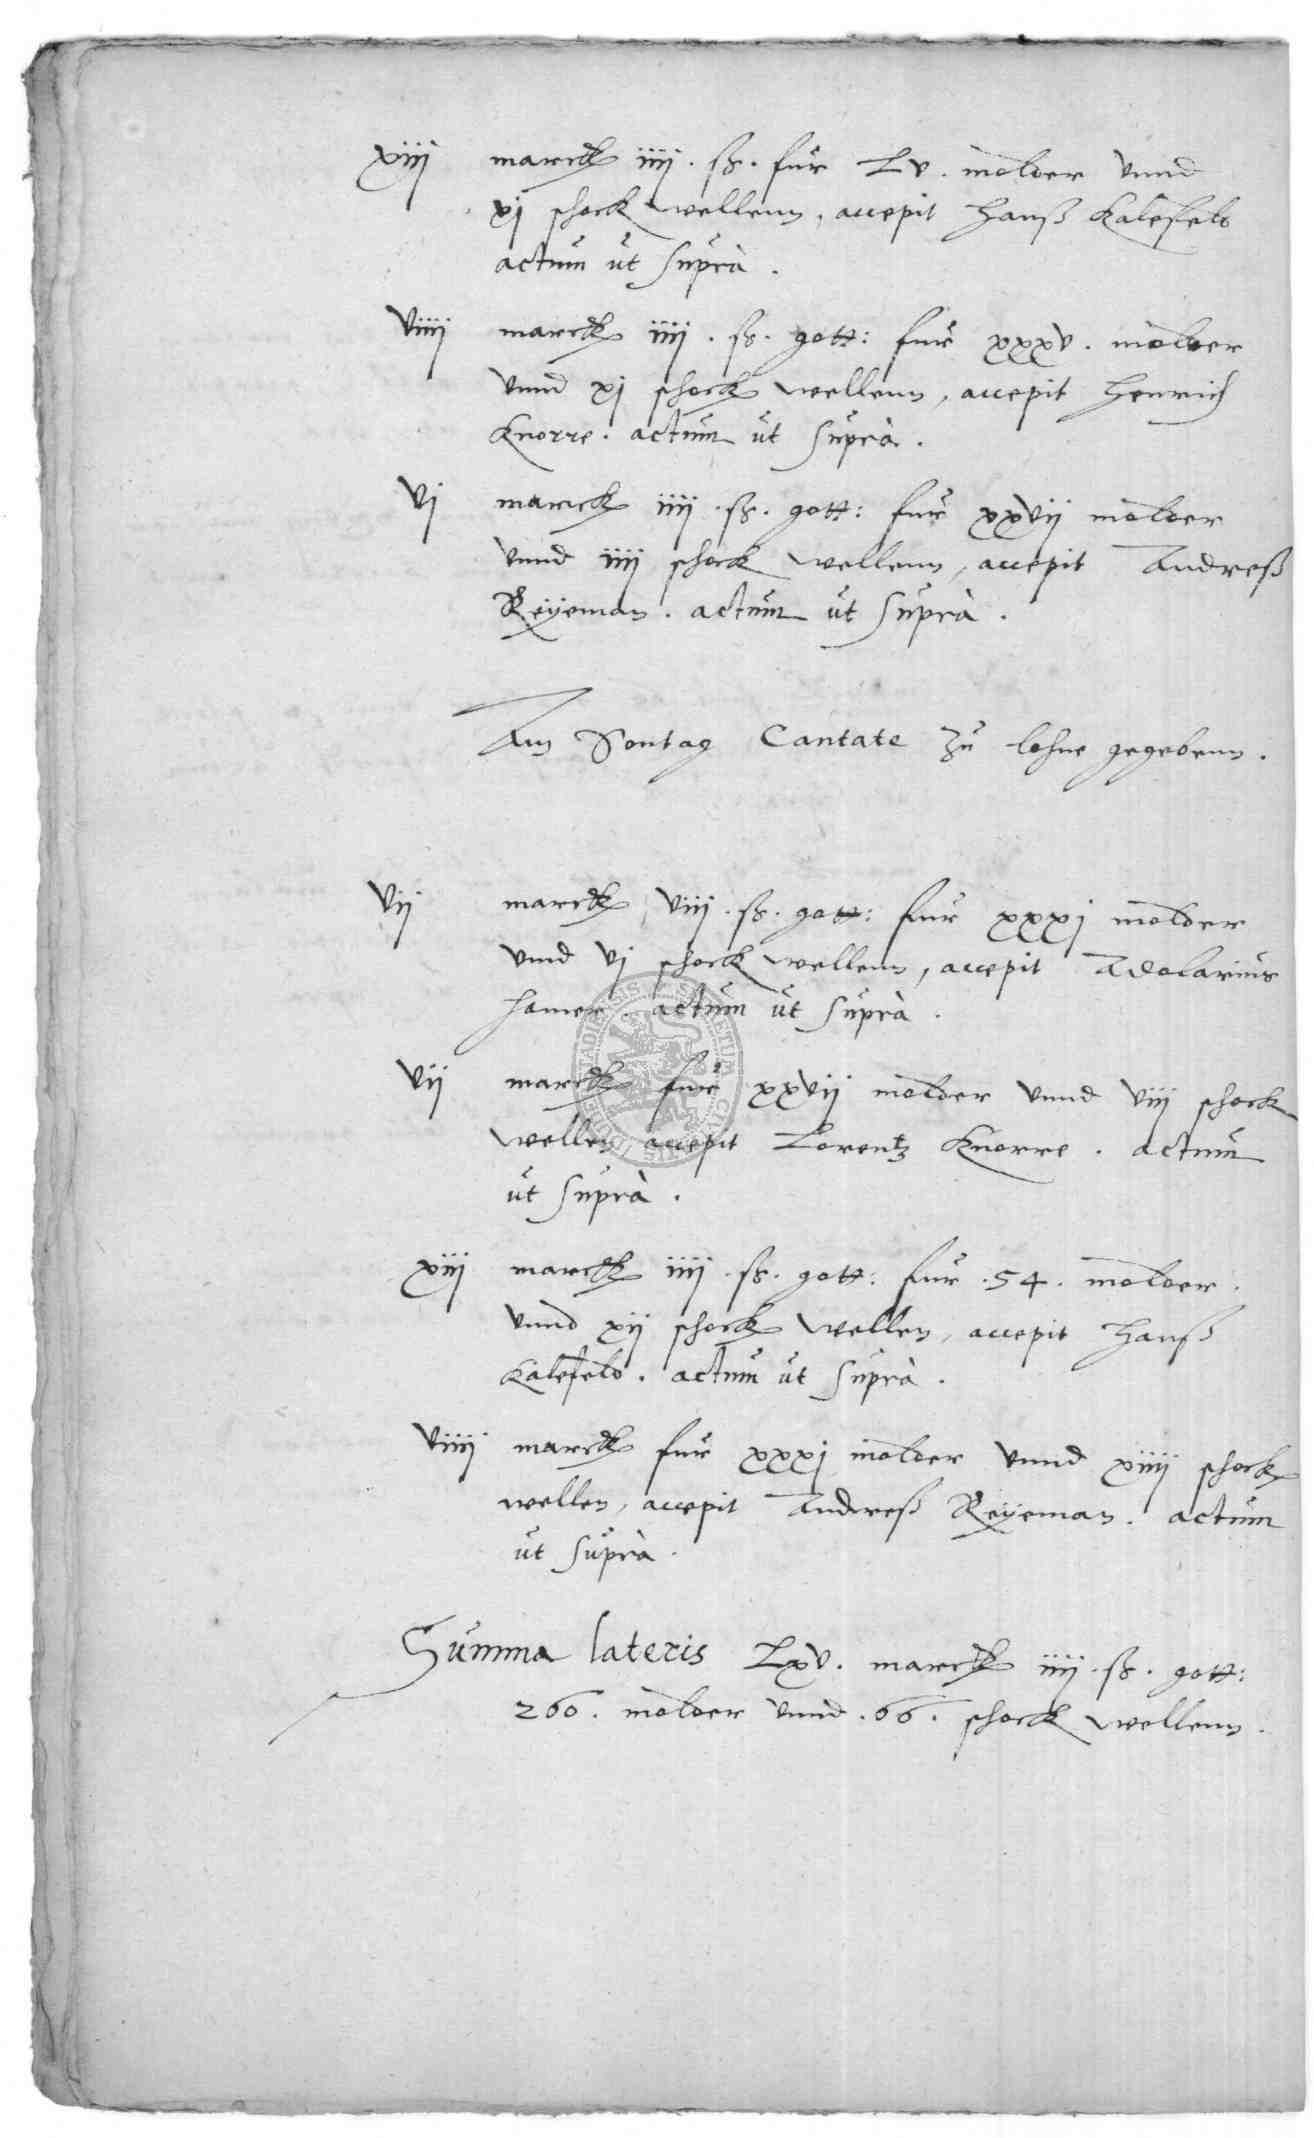 xiij marck iiij. ß. fur Lv. molder vnnd
xj schock wellenn, accepit Hanß Kalefeld
actum ut supra.
viiij marck iiij. ß. gott: fur xxxv. molder
vnnd xj schock wellenn, accepit Henrich
Knorre. actum ut supra.
vj marck iiij. ß. gott: fur xxvij molder
vnnd iiij schock wellenn, accepit Andreß
Reyeman. actum ut supra.
Am Sontag Cantate zu lohne gegebenn.
vij marck viij. ß. gott: fur xxxj molder
vnnd vj schock wellenn, accepit Adolarius
Hamer. actum ut supra.
vij marck fur xxvij molder vnnd viij schock
wellen accepit Lorentz Knorre. actum
ut supra.
xiij marck iiij. ß. gott: fur .54. molder.
vnnd xij schock wellen, accepit Hanß
Kalefeld. actum ut supra.
viiij marck fur xxxj molder vnnd xiiij schock
wellen, accepit Andreß Reyeman. actum
ut supra.
Summa lateris Lxv. marck iiij. ß. gott:
260. molder vnnd .66. schock wellenn.